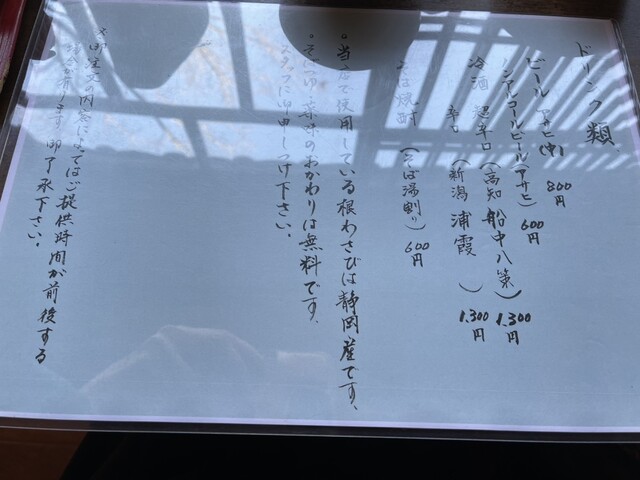 ドリンク類
ビール アサヒ(中) 800円
ノンアルコールビール(アサヒ) 600円
冷酒 超辛口(高知 船中八策) 1.300円
辛口(新潟 浦霞) 1.300円
そば焼酎(そば湯割り) 600円
・当店で使用している根わさびは静岡産です、
・そばつゆ、薬味のおかわりは無料です、
スタッフに御申しつけ下さい。
※御注文の内容によってはご提供時間が前後する
場合が有ります御了承下さい。